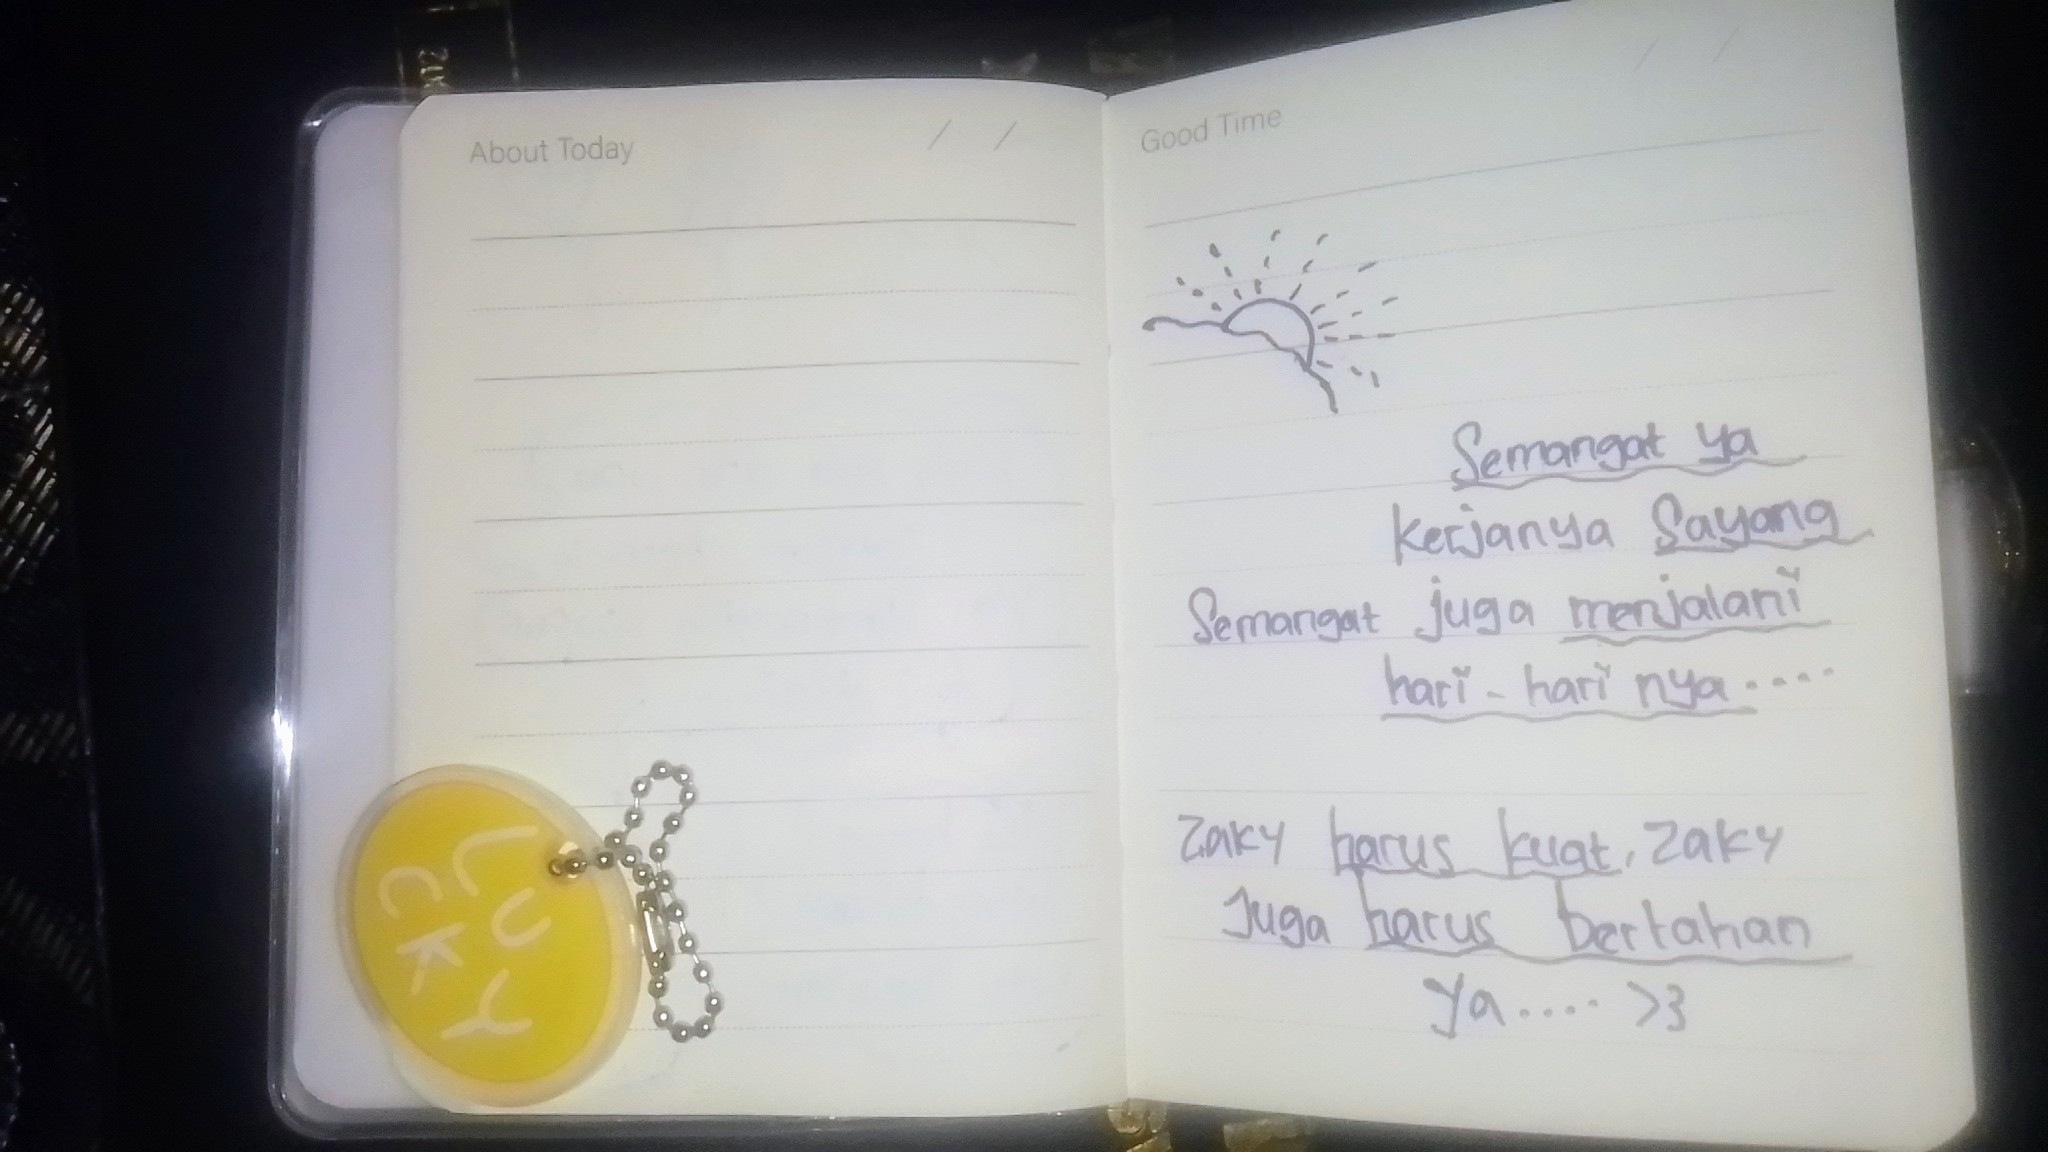 About Today / /
Good Time / /
Semangat ya
kerjanya Sayang
Semangat juga menjalani
hari - hari nya ....
Zaky harus kuat, Zaky
Juga harus bertahan
Ya .... >3
LU
CK
Y